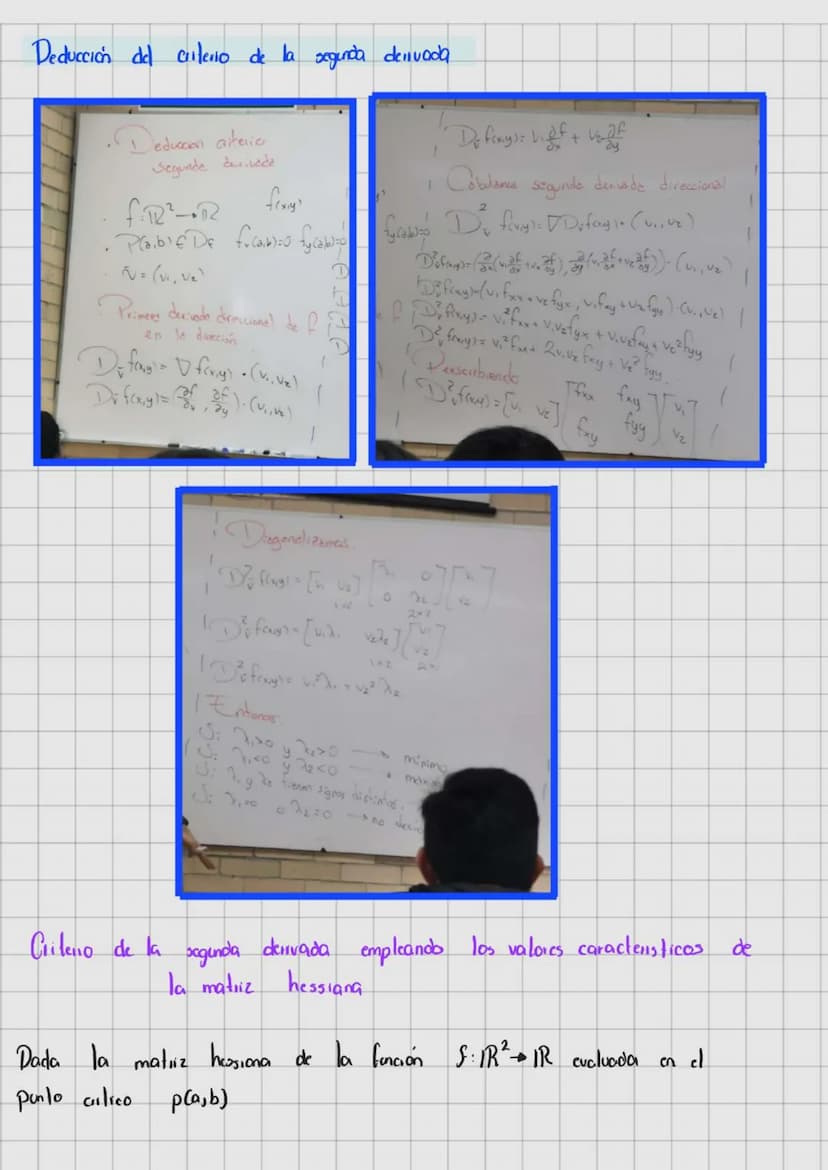 Deducción del criterio de la segunda derivada
Deducción criterio
segunda derivada
f: ℝ² → ℝ f(x,y)
P(a,b) ∈ Df fx(a,b)=0 fy(a,b)=0
v̄ = (v₁, v₂)
Primera derivada direccional de f
en la dirección
Dv̄ f(x,y) = ∇f(x,y) · (v₁, v₂)
Dv̄ f(x,y) = (∂f/∂x, ∂f/∂y) · (v₁, v₂)
Dv̄ f(x,y) = v₁ ∂f/∂x + v₂ ∂f/∂y
segunda derivada direccional
fy(a,b)=0 D²v̄ f(x,y) = ∇Dv̄ f(x,y) · (v₁, v₂)
D²v̄ f(x,y) = (∂/∂x (v₁ ∂f/∂x + v₂ ∂f/∂y), ∂/∂y (v₁ ∂f/∂x + v₂ ∂f/∂y)) · (v₁, v₂)
D²v̄ f(x,y) = (v₁ fxx + v₂ fyx, v₁ fxy + v₂ fyy) · (v₁, v₂)
D²v̄ f(x,y) = v₁² fxx + v₁v₂ fyx + v₁v₂ fxy + v₂² fyy
D²v̄ f(x,y) = v₁² fxx + 2v₁v₂ fxy + v₂² fyy
D²v̄ f(x,y) = [v₁ v₂] [fxx fxy] [v₁]
[fxy fyy] [v₂]
Diagonalizamos
D²v̄ f(x,y) = [v₁ v₂] [λ₁ 0] [v₁]
[0 λ₂] [v₂]
1×2 2×2
D²v̄ f(x,y) = [v₁λ₁ v₂λ₂] [v₁]
[v₂]
1×2
D²v̄ f(x,y) = v₁²λ₁ + v₂²λ₂
Entonces
Si λ₁>0 y λ₂>0 → mínimo
Si λ₁<0 y λ₂<0 →
Si λ₁ y λ₂ tienen signos distintos
Si λ₁=0 o λ₂=0 → no
Criterio de la segunda derivada empleando los valores caracteristicos de
la matriz hessiana
Dada la matriz hessiana de la función f: ℝ² → ℝ evaluada en el
punto critico p(a,b)